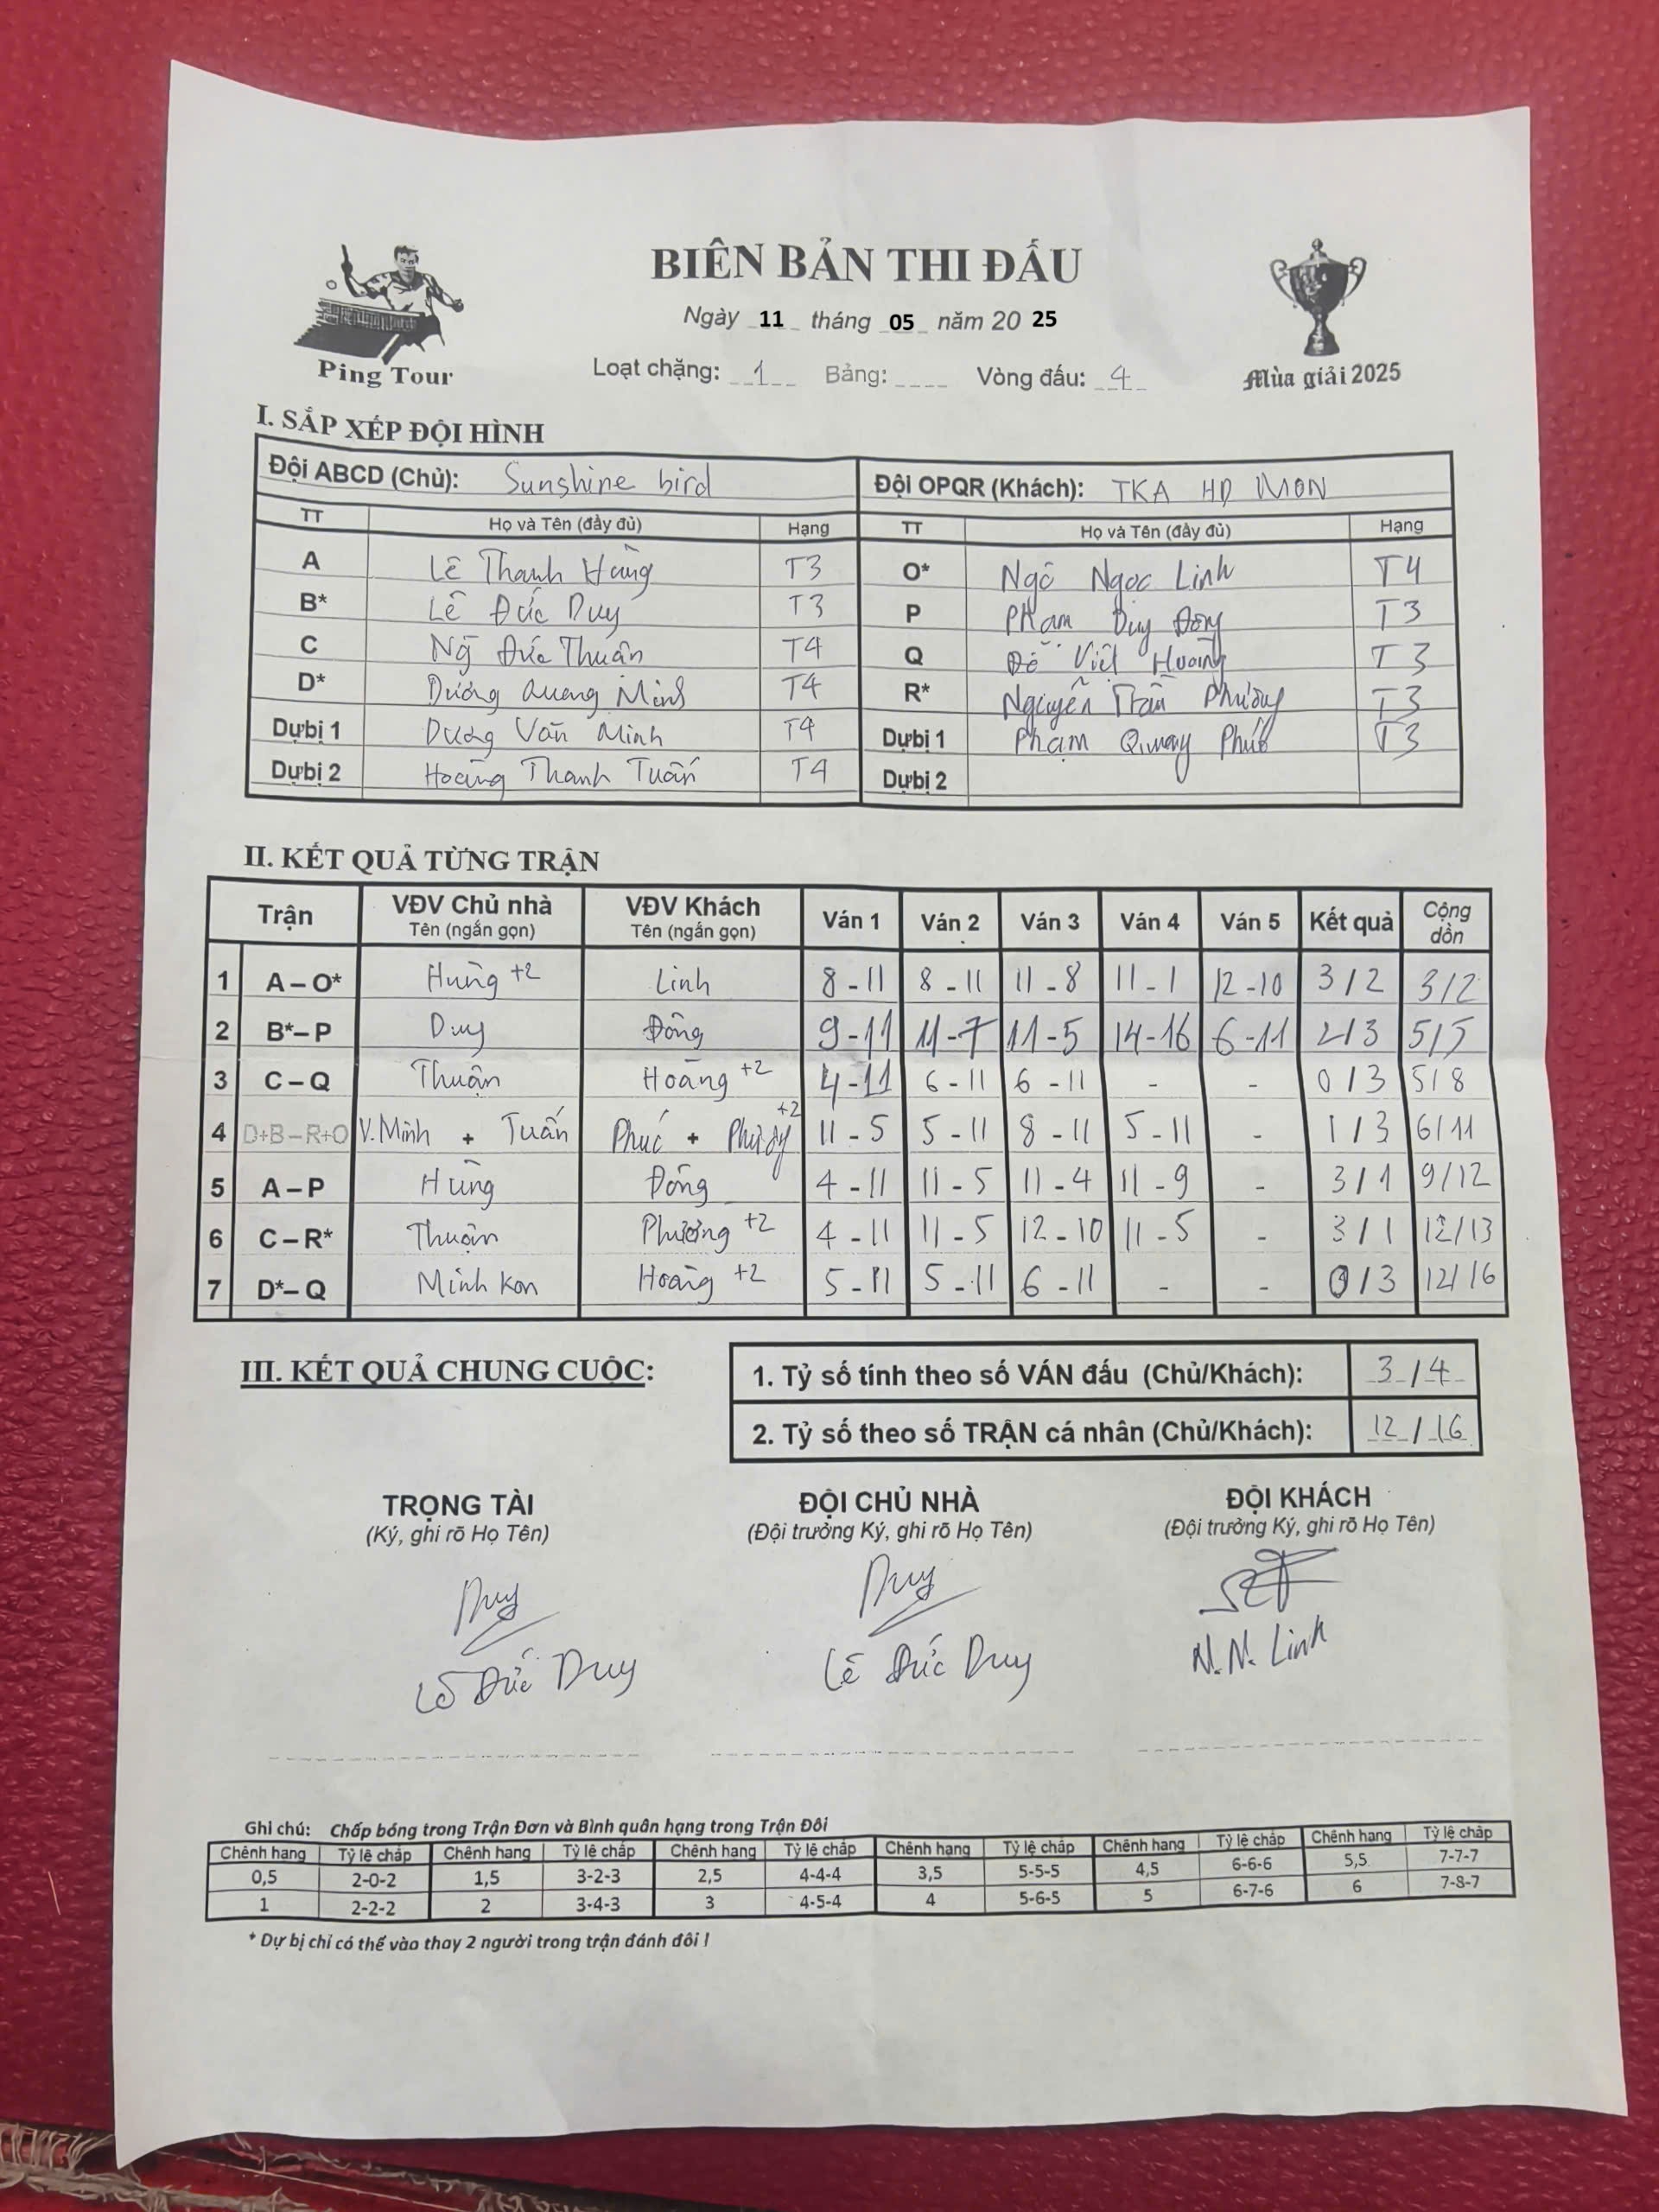 BIÊN BẢN THI ĐẤU
Ngày 11 tháng 05 năm 20 25
Ping Tour
Loạt chặng: 1 Bảng: Vòng đấu: 4
Mùa giải 2025
I. SẮP XẾP ĐỘI HÌNH
Đội ABCD (Chủ): Sunshine bird Đội OPQR (Khách): TKA HD MON
TT Họ và Tên (đầy đủ) Hạng TT Họ và Tên (đầy đủ) Hạng
A Lê Thanh Hùng T3 O* Ngô Ngọc Linh T4
B* Lê Đức Duy T3 P Phạm Duy Đông T3
C Ng Đức Thuận T4 Q Đỗ Việt Hoàng T3
D* Dương Quang Minh T4 R* Nguyễn Trần Phương T3
Dự bị 1 Dương Văn Minh T4 Dự bị 1 Phạm Quang Phúc T3
Dự bị 2 Hoàng Thanh Tuấn T4 Dự bị 2
II. KẾT QUẢ TỪNG TRẬN
Trận VĐV Chủ nhà Tên (ngắn gọn) VĐV Khách Tên (ngắn gọn) Ván 1 Ván 2 Ván 3 Ván 4 Ván 5 Kết quả Cộng dồn
1 A – O* Hùng +2 Linh 8 - 11 8 - 11 11 - 8 11 - 1 12 - 10 3 / 2 3/2
2 B* – P Duy Đông 9-11 11-7 11-5 14-16 6-11 2/3 5/5
3 C – Q Thuận Hoàng +2 4-11 6-11 6-11 - - 0/3 5/8
4 D+B – R+O V.Minh + Tuấn Phúc + Phương +2 11-5 5-11 8-11 5-11 - 1/3 6/11
5 A – P Hùng Đông 4-11 11-5 11-4 11-9 - 3/1 9/12
6 C – R* Thuận Phương +2 4-11 11-5 12-10 11-5 - 3/1 12/13
7 D* – Q Minh Kon Hoàng +2 5-11 5-11 6-11 - - 0/3 12/16
III. KẾT QUẢ CHUNG CUỘC:
1. Tỷ số tính theo số VÁN đấu (Chủ/Khách): 3 / 4
2. Tỷ số theo số TRẬN cá nhân (Chủ/Khách): 12 / 16
TRỌNG TÀI ĐỘI CHỦ NHÀ ĐỘI KHÁCH
(Ký, ghi rõ Họ Tên) (Đội trưởng Ký, ghi rõ Họ Tên) (Đội trưởng Ký, ghi rõ Họ Tên)
Duy Duy
Lê Đức Duy Lê Đức Duy N.N. Linh
Ghi chú: Chấp bóng trong Trận Đơn và Bình quân hạng trong Trận Đôi
Chênh hạng Tỷ lệ chấp Chênh hạng Tỷ lệ chấp Chênh hạng Tỷ lệ chấp Chênh hạng Tỷ lệ chấp Chênh hạng Tỷ lệ chấp Chênh hạng Tỷ lệ chấp
0,5 2-0-2 1,5 3-2-3 2,5 4-4-4 3,5 5-5-5 4,5 6-6-6 5,5 7-7-7
1 2-2-2 2 3-4-3 3 4-5-4 4 5-6-5 5 6-7-6 6 7-8-7
* Dự bị chỉ có thể vào thay 2 người trong trận đánh đôi !